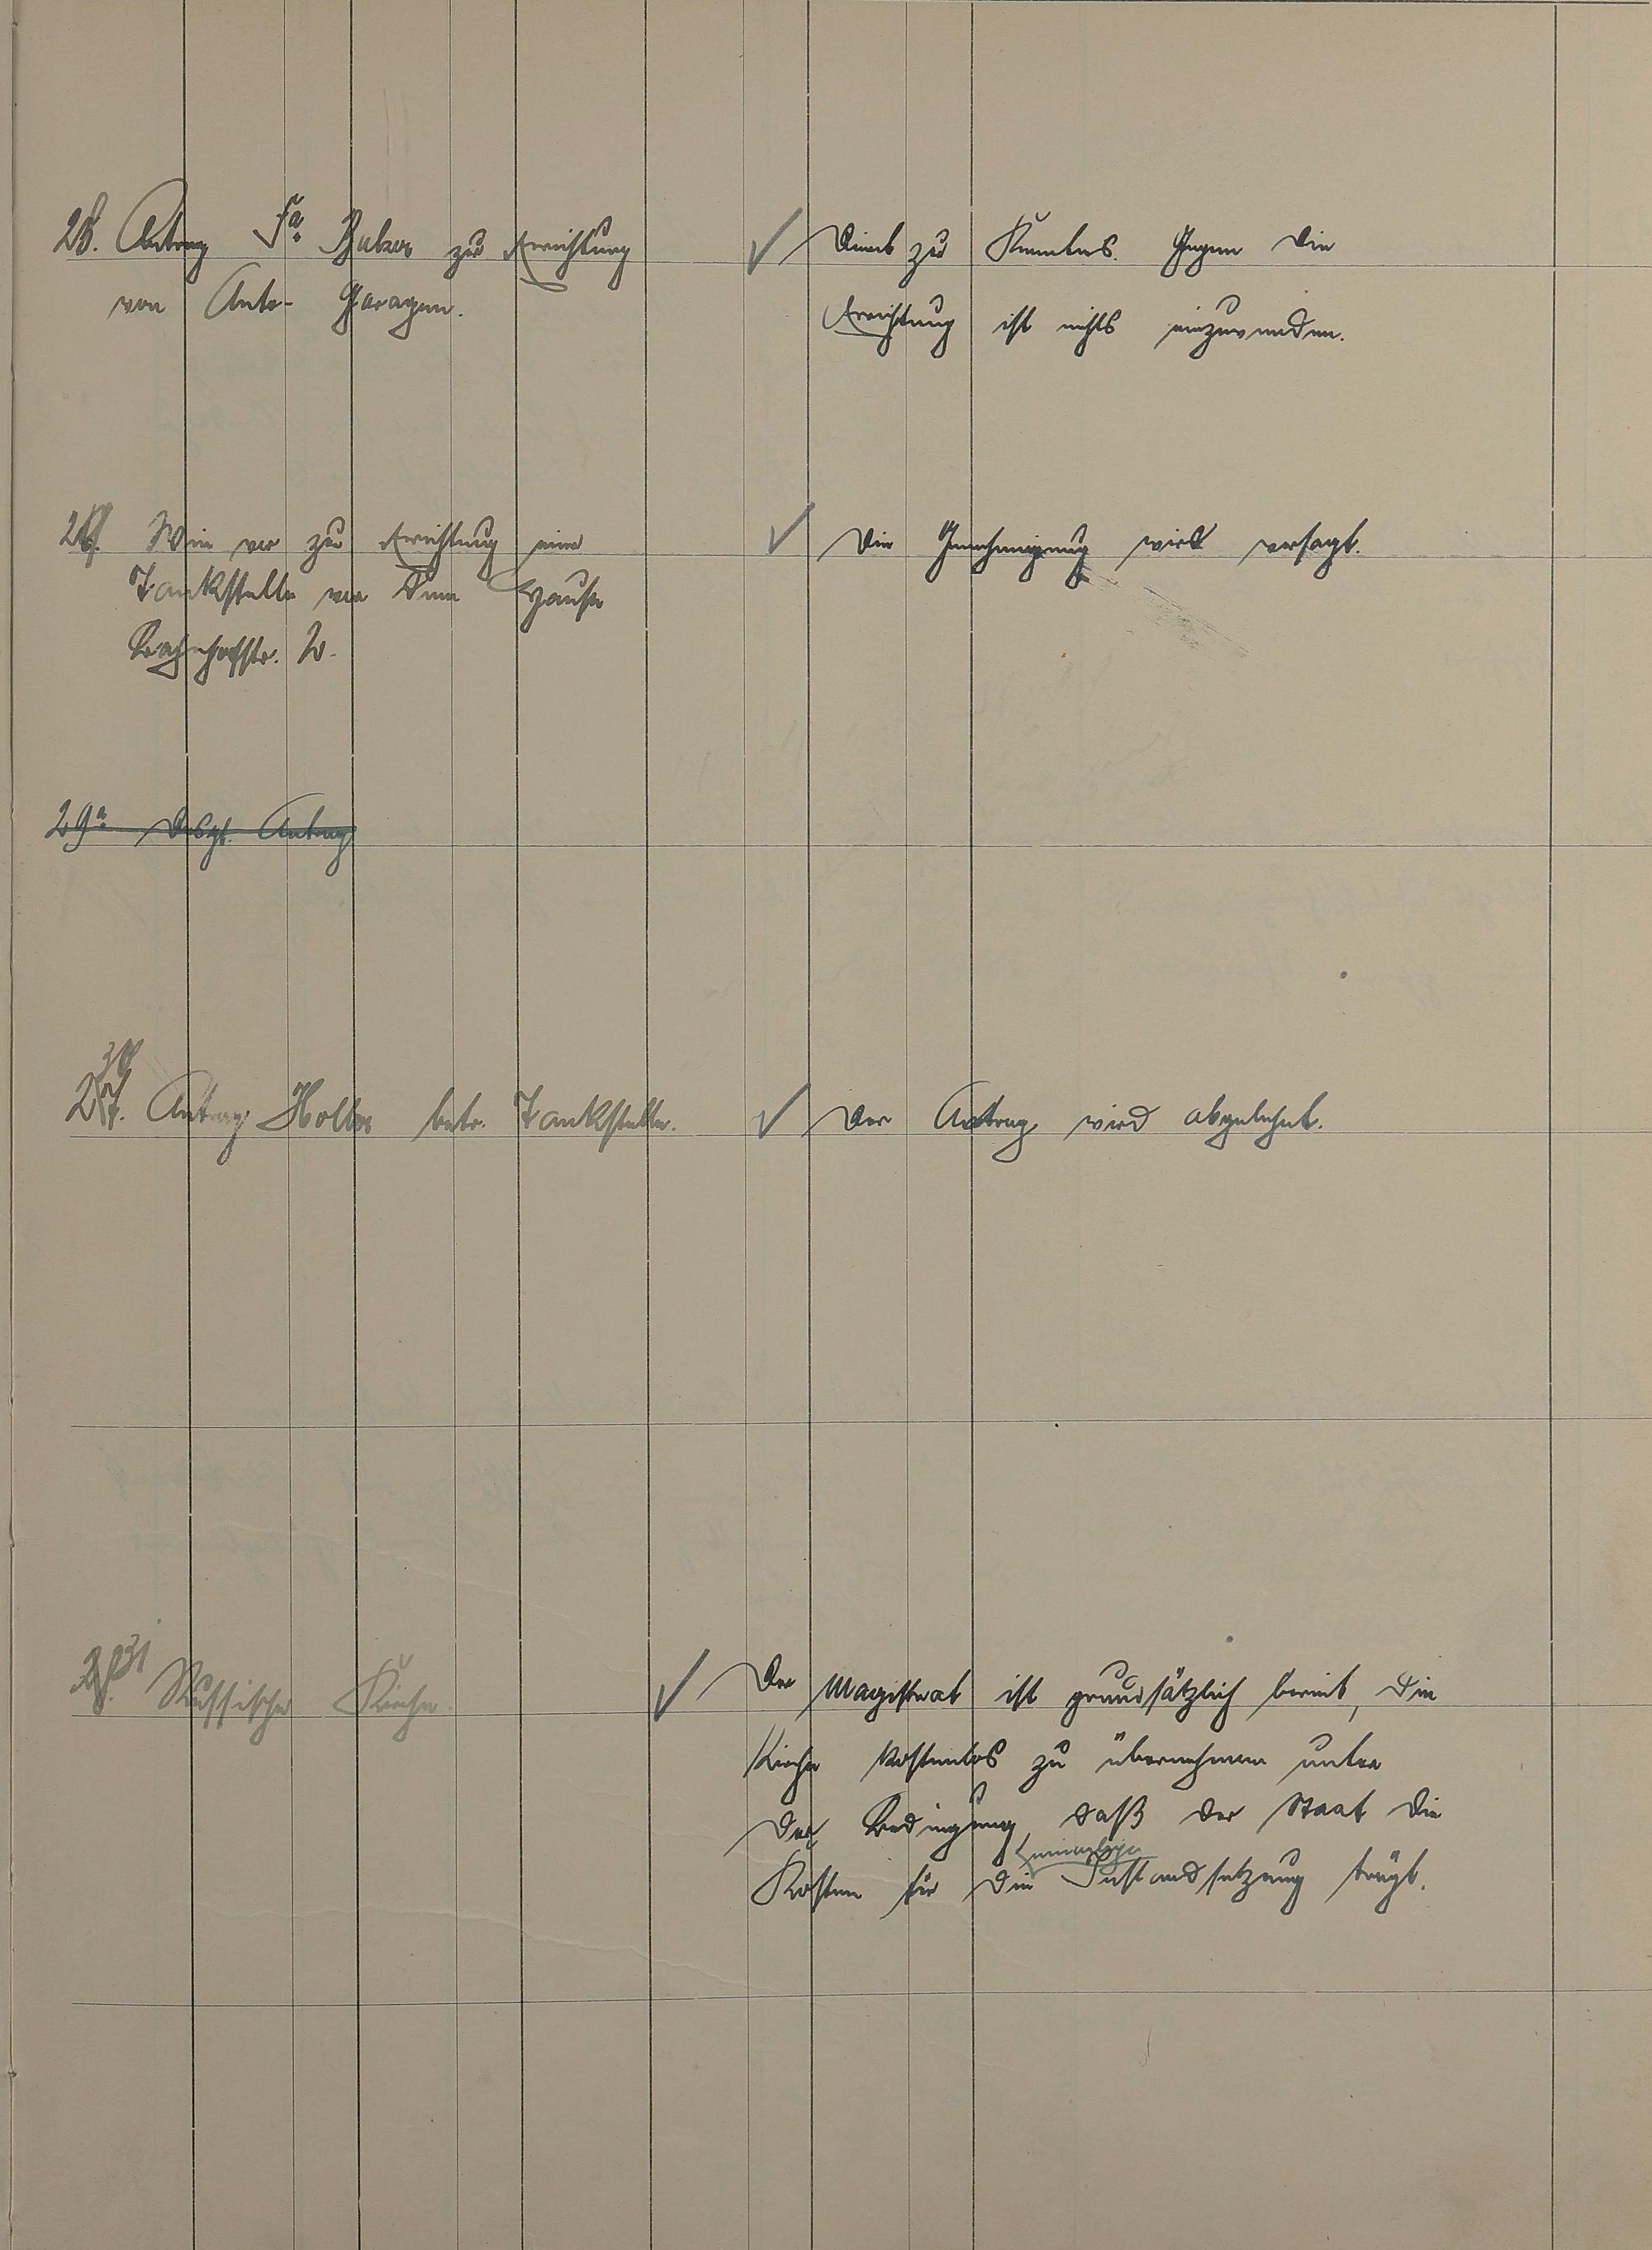 28. Antrag Fa. Balzer zur Errichtung
von Auto- Garagen.
✓ Dient zur Kenntnis. Gegen die
Errichtung ist nichts einzuwenden.
Wie vor zur Errichtung einer
Tankstelle vor dem Hause
Bahnhofstr. 2.
✓ Die Genehmigung wird versagt.
29a Desgl. Antrag
30
27. Antrag Holler betr. Tankstelle.
✓ Der Antrag wird abgelehnt.
31 Russische Kirche.
✓ Der Magistrat ist grundsätzlich bereit, die
Kirche kostenlos zu übernehmen unter
der Bedingung, daß der Staat die
einmalige
Kosten für die Instandsetzung trägt.